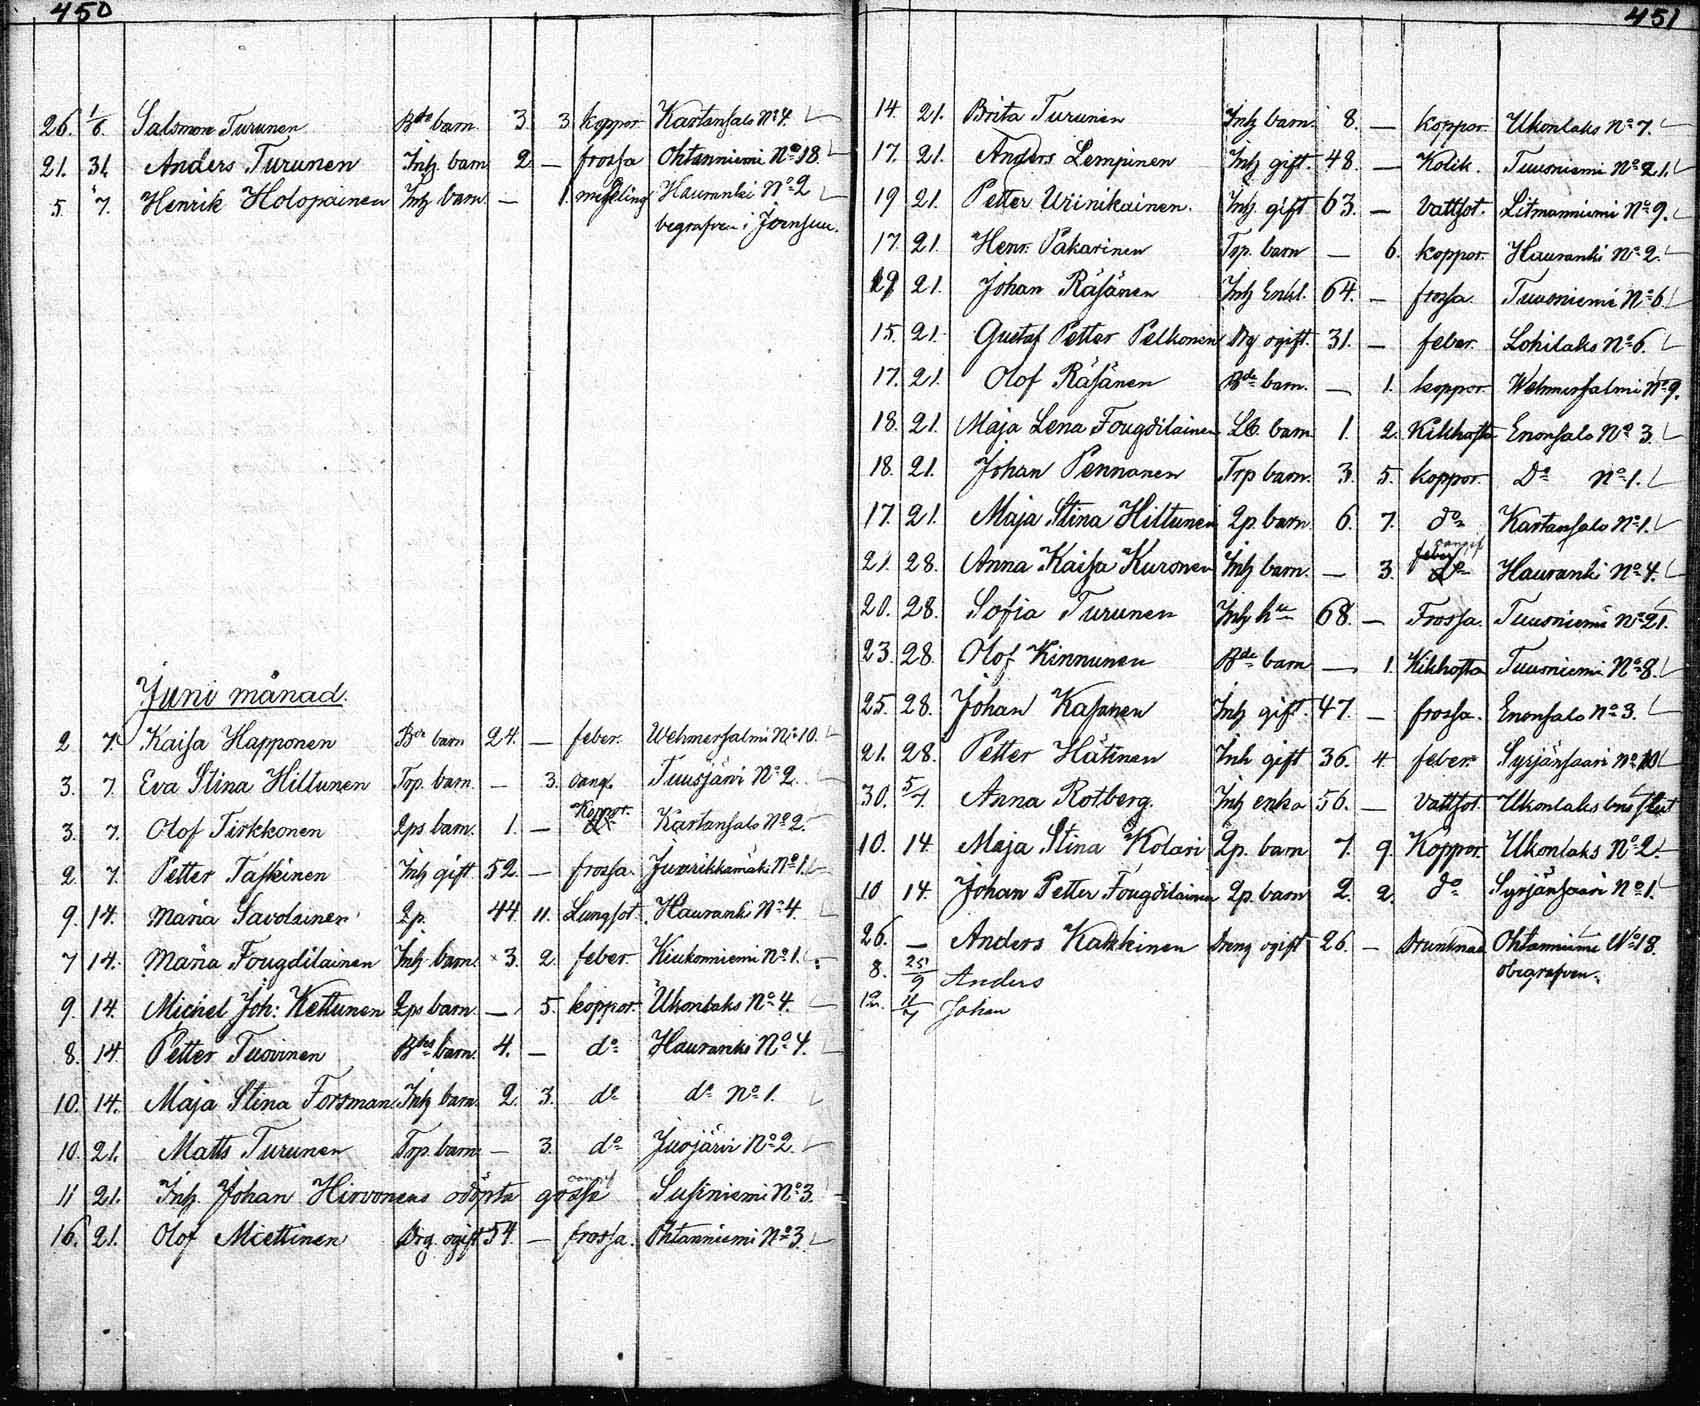 450
26. 1/6. Salomon Turunen Bde barn. 3. 3. koppor. Kartansalo No 4.
21. 31. Anders Turunen Inh. barn 2 — frossa Ohtanniemi No 18.
5. 7. Henrik Holopainen Inh. barn — 1. messling Hauranki No 2
begrafven i Joensuu.
Juni månad.
2. 7. Kaisa Happonen Bde barn 24. — feber. Wehmersalmi No 10.
3. 7. Eva Stina Hiltunen Trp. barn. — 3. oang. Tuusjärvi No 2.
3. 7. Olof Tirkkonen Lps barn. 1. — Koppor. Kartansalo No 2.
2. 7. Petter Taskinen Inh gift 52. — frossa. Juurikkamäki No 1.
9. 14. Maria Savolainen Lp. 44. 11. Lungsot. Hauranki No 4.
7 14. Maria Fougdilainen Inh. barn. 3. 2. feber. Kiukoniemi No 1.
9. 14. Michel Joh: Kettunen Lps barn. — 5. koppor. Ukonlaks No 4.
8. 14. Petter Tuovinen Bdes barn. 4. — do Hauranki No 4.
10. 14. Maja Stina Forsman Inh barn. 2. 3. do do No 1.
10. 21. Matts Turunen Trp. barn. — 3. do Juojärvi No 2.
11 21. Inh. Johan Hirvonens odöpta gosse oangif Susiniemi No 3.
16. 21. Olof Miettinen Drg ogift 54. — frossa. Ohtanniemi No 3.
451
14. 21. Brita Turunen Inh barn. 8. — koppor. Ukonlaks No 7.
17. 21. Anders Lempinen Inh gift. 48. — Kolik. Tuusniemi No 21.
19 21. Petter Wiinikainen. Inh. gift 63. — Vattsot. Litmanniemi No 9.
17. 21. Henr. Pakarinen Trp. barn — 6. koppor. Hauranki No 2.
19 21. Johan Räsänen Inh Enkl. 64. — frossa. Tuusniemi No 6.
15. 21. Gustaf Petter Pelkonen Drg ogift. 31. — feber. Lohilaks No 6.
17. 21. Olof Räsänen Bde barn. — 1. koppor Wehmersalmi No 9.
18. 21. Maja Lena Fougdilainen Lb. barn 1. 2. Kikhosta Enonsalo No 3.
18. 21. Johan Pennanen Trp barn. 3. 5. koppor. Do No 1.
17. 21. Maja Stina Hiltunen Lp. barn. 6. 7. do Kartansalo No 1.
21. 28. Anna Kaisa Kuronen Inh barn. — 3. feber oangif do Hauranki No 4.
20. 28. Sofia Turunen Inh hu 68. — Frossa. Tuusniemi No 21.
23. 28. Olof Kinnunen Bde barn — 1. Kikhosta Tuusniemi No 8.
25. 28. Johan Kasanen Inh gift. 47. — frossa. Enonsalo No 3.
21. 28. Petter Hätinen Inh gift 36. 4 feber. Syrjänsaari No 10
30. 5/7. Anna Rotberg. Inh enka 56. — Vattsot. Ukonlaks
10. 14. Maja Stina Kolari Lp. barn 7. 9. Koppor. Ukonlaks No 2.
10 14. Johan Petter Fougdilainen Lp. barn 2. 2. do Syrjänsaari No 1.
26. — Anders Kakkinen Dreng ogift 26. — Drunknad Ohtanniemi No 18.
obegrafven.
8. 25/9 Anders
10. 4/7 Johan